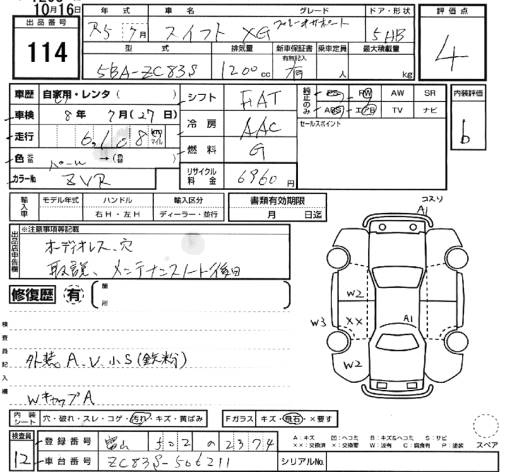 10月16日
出品番号
114
年式 車名 グレード ドア・形状
R5 7月 スイフト XG 5HB
型式 排気量 新車保証書 乗車定員 最大積載量
有無記入
5BA-ZC83S 1200cc 有 人 kg
評価点
4
内装評価
b
車歴 自家用・レンタ( )
車検 8年 7月(27)日
走行 km マイル
色 パール →( )
カラー№ ZVR
シフト FAT
冷房 AAC
燃料 G
リサイクル料金 6960円
純正のみ PS PW AW SR
ABS エアB TV ナビ
セールスポイント
輸入車 モデル年式 ハンドル 輸入区分
右H・左H ディーラー・並行
書類有効期限
月 日迄
出品店申告欄
※注意事項等記載
オーディオレス、穴
取説、メンテナンスノート後日
修復歴 有 ( 箇所 )
検査員記入欄
外装A、U、小S(鉄粉)
WキャップA
コスリ
A1
W2
W3 XX A1
W2
内装シート 穴・破れ・スレ・コゲ・汚れ・キズ・黄ばみ
Fガラス キズ・飛石・×要す
検査員 12
登録番号 富山 502 の 2374
車台番号 ZC83S-506211
シリアル№
A:キズ U:ヘコミ B:キズ&ヘコミ S:サビ
××:交換済 ×:交換要 W:波有 C:腐食有 P:塗装
スペア